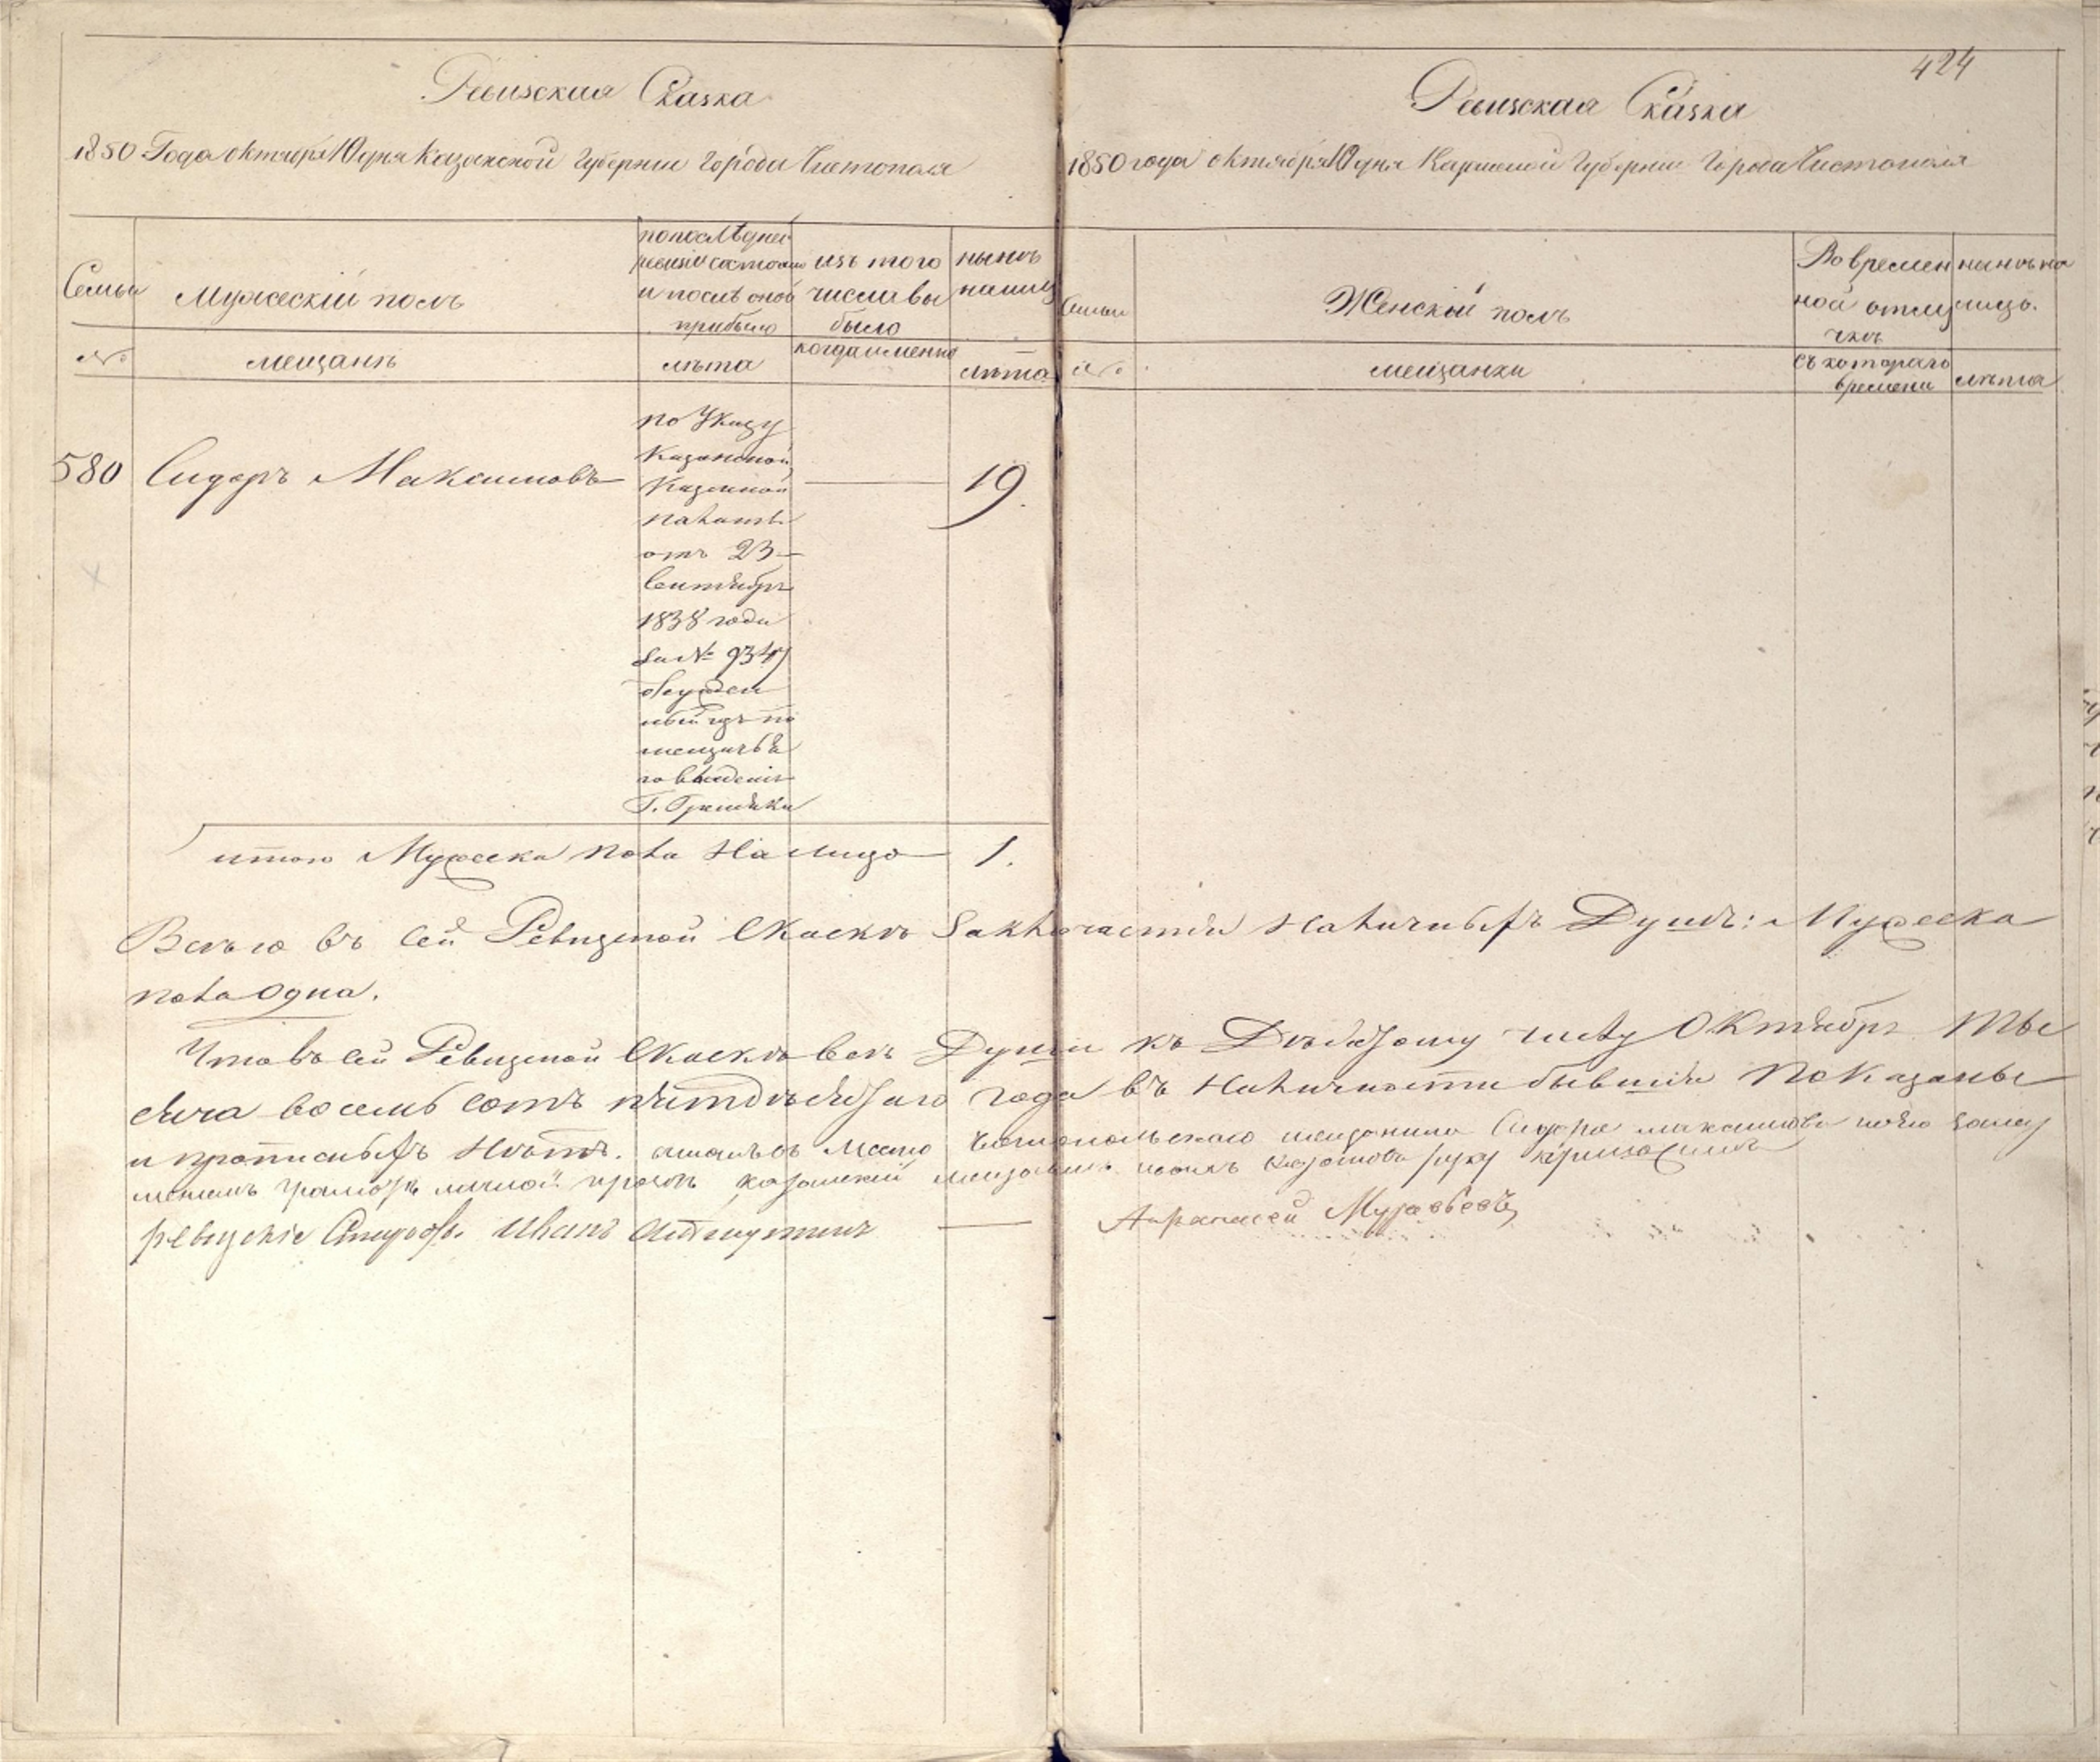 424
Ревизская Сказка
1850 Года октября 10 дня Казанской Губернии Города Чистополя
Семьи
Мужескій полъ
по последней
ревизіи состояло
и после оной
прибыло
изъ того
числа вы
было
ныне
на лицо
№
мещане
лета
когда именно
лета
580 Сидоръ Максимовъ 19.
по Указу
Казанской
Казенной
Палаты
отъ 23
Сентября
1838 года
за № 9347
ный изъ по
Г.
итого Мужеска пола На лицо 1.
Ревизская Сказка
1850 года октября 10 дня Казанской Губерніи Города Чистополя
Семьи
Женскій полъ
Во времен
ной отлу
чке
ныне на
лицо.
№
мещанки
съ котораго
времени
лета
Всего въ сей Ревизской Скаске Заключается Наличныхъ Душъ: Мужеска
пола одна.
Что въ сей Ревизской Скаске все Души къ Десятому числу Октября Ты
сяча восемь сотъ пятдесятаго года въ Наличности бывшія Показаны
и прописныхъ Нетъ. вместо Чистопольскаго мещанина Сидора Максимова
грамоте личной казанскій мещанинъ руку приложилъ
ревизскіе Иванъ
Афанасей Муравьевъ